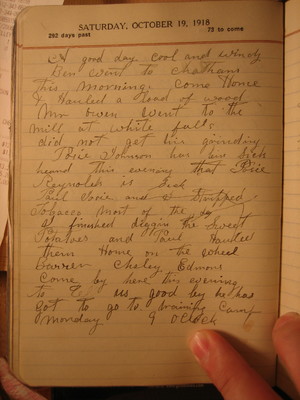 SATURDAY, OCTOBER 19, 1918
292 days past 73 to come
A good day cool and windy
Ben went to Chatham
This morning. Come Home
& Hauled a load of wood
Mr Owen went to the
mill at white falls
did not get his grinding
Johnson has been Sick
heard this evening that
Reynolds is Sick
Paul and I Stripped
Tobacco most of the day
I finished diggin the Sweet
Potatoes and Paul Hauled
them Home on the wheel
Edmons
Come by here this evening
to us good by he has
Got to go to training Camp
Monday 9 O Clock